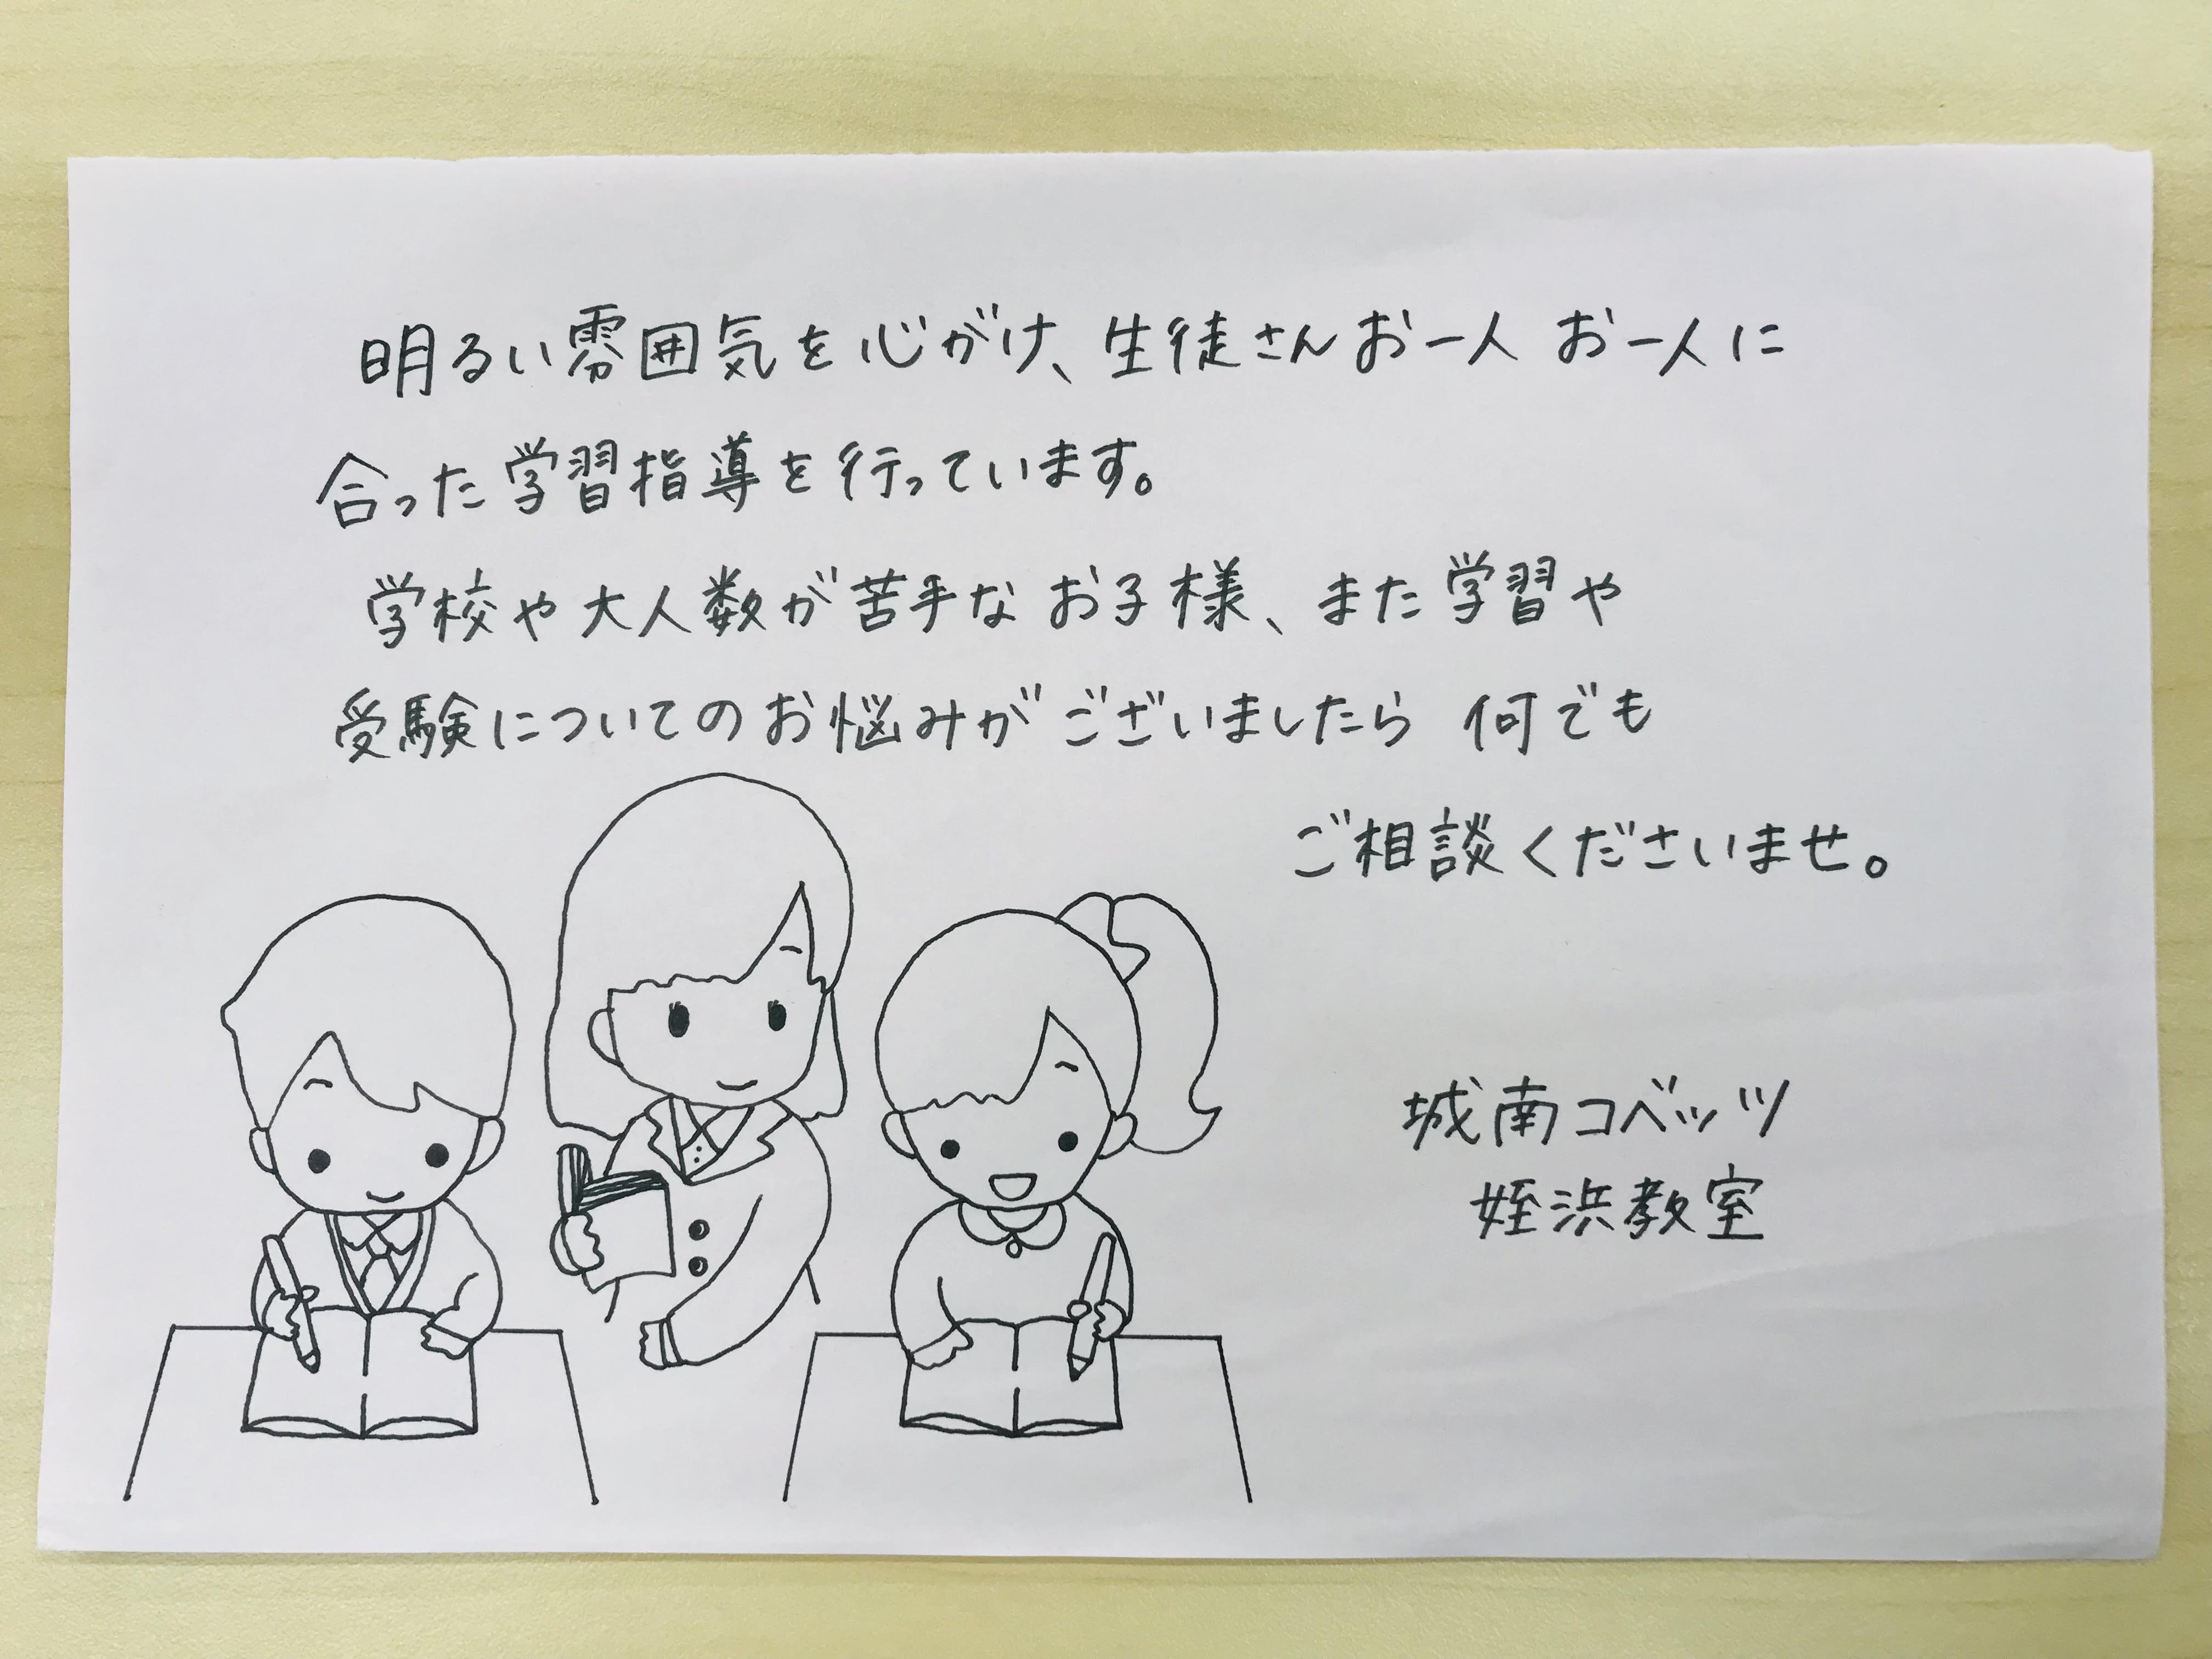 明るい雰囲気を心がけ、生徒さんお一人 お一人に
合った学習指導を行っています。
学校や大人数が苦手なお子様、また学習や
受験についてのお悩みがございましたら 何でも
ご相談くださいませ。
城南コベッツ
姪浜教室